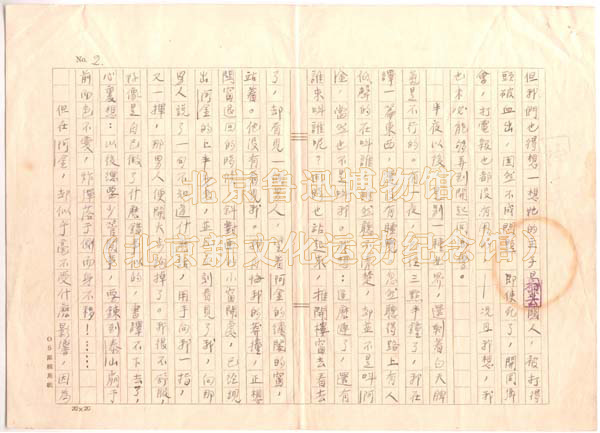 No. 2.
但我們也得想一想她的主子是外國人，被打得
頭破血出，固然不成問題，即使死了，開同鄉
會，打電報也都沒有用的——況且我想，我
也未必能夠弄到開起同鄉會。
半夜以後
是不行的。有一夜，在三點半鐘了，我在
譯一篇東西，還沒有睡覺。忽然聽得路上有人
低聲的在叫誰，雖然聽不清楚，卻並不是叫阿
金，當然也不是叫我。我想：這麼遲了，還有
誰來叫誰呢？同時也站起來，推開樓窗去看去
了，卻看見一個男人，望着阿金的繡閣的窗，
站着。他沒有看見我。我自悔我的莽撞，正想
關窗退回的時候，斜對面的小窗開處，已經現
出阿金的上半身來，並且立刻看見了我，向那
男人說了一句不知道什麼話，用手向我一指，
又一揮，那男人便開大步跑掉了。我很不舒服，
好像是自己做了什麼錯事似的，書譯不下去了，
心裏想：以後總要少管閒事，要煉到泰山崩于
前而色不變，炸彈落于側而身不移！……
但在阿金，卻似乎毫不受什麼影響，因為
20×20
北京鲁迅博物馆
北京新文化运动纪念馆